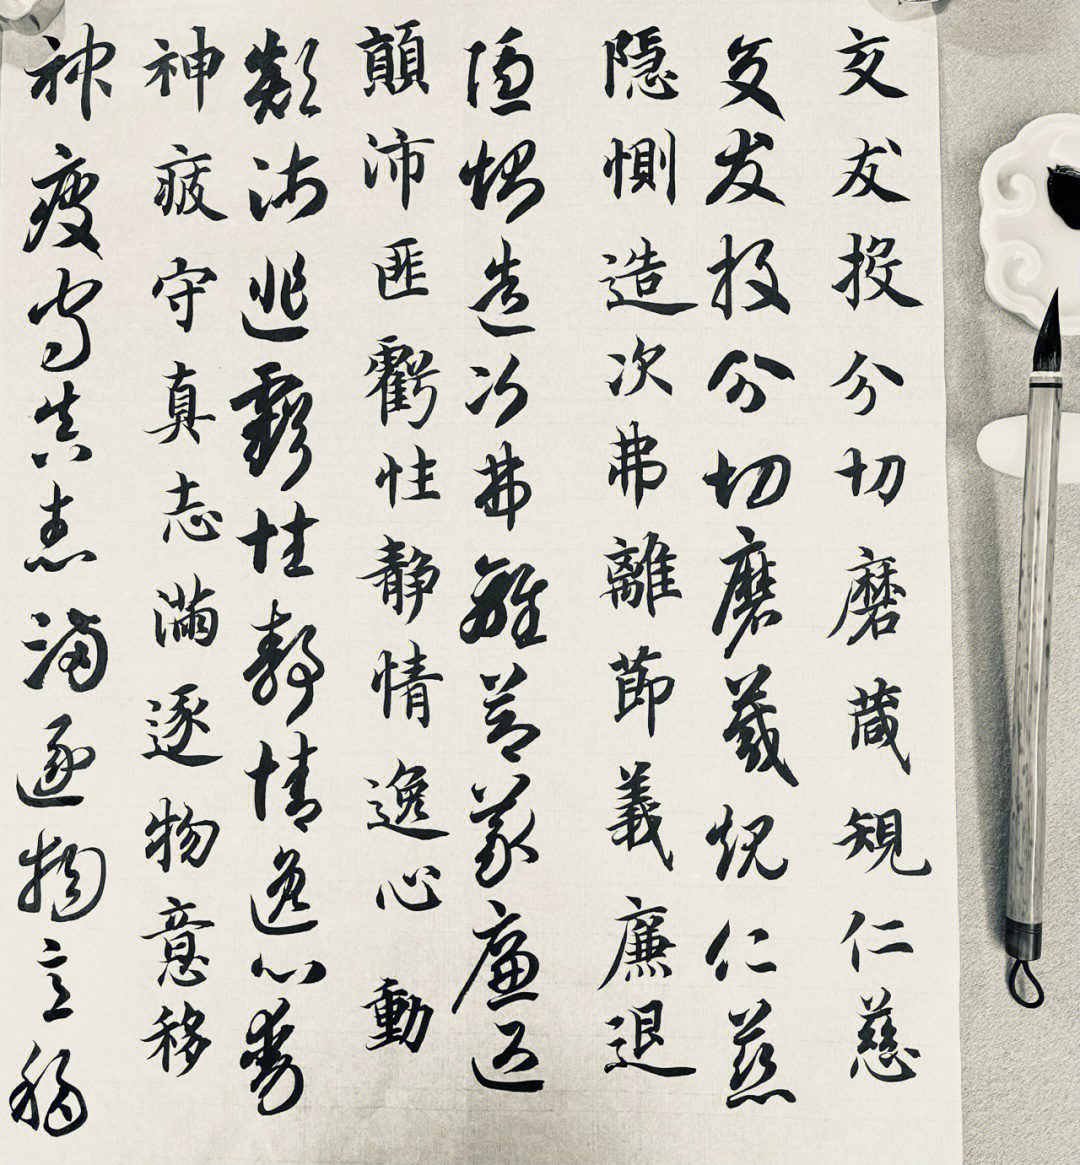 交友投分切磨箴規仁慈
交友投分切磨箴規仁慈
隱惻造次弗離節義廉退
隱惻造次弗離節義廉退
顛沛匪虧性靜情逸心動
顛沛匪虧性靜情逸心動
神疲守真志滿逐物意移
神疲守真志滿逐物意移